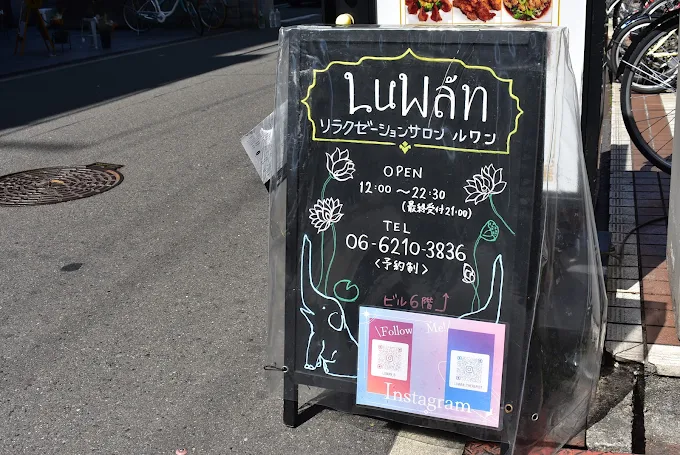 LuWan
リラクゼーションサロン ルワン
OPEN
12:00〜22:30
(最終受付21:00)
TEL
06-6210-3836
<予約制>
ビル6階↑
Follow Me!
Instagram